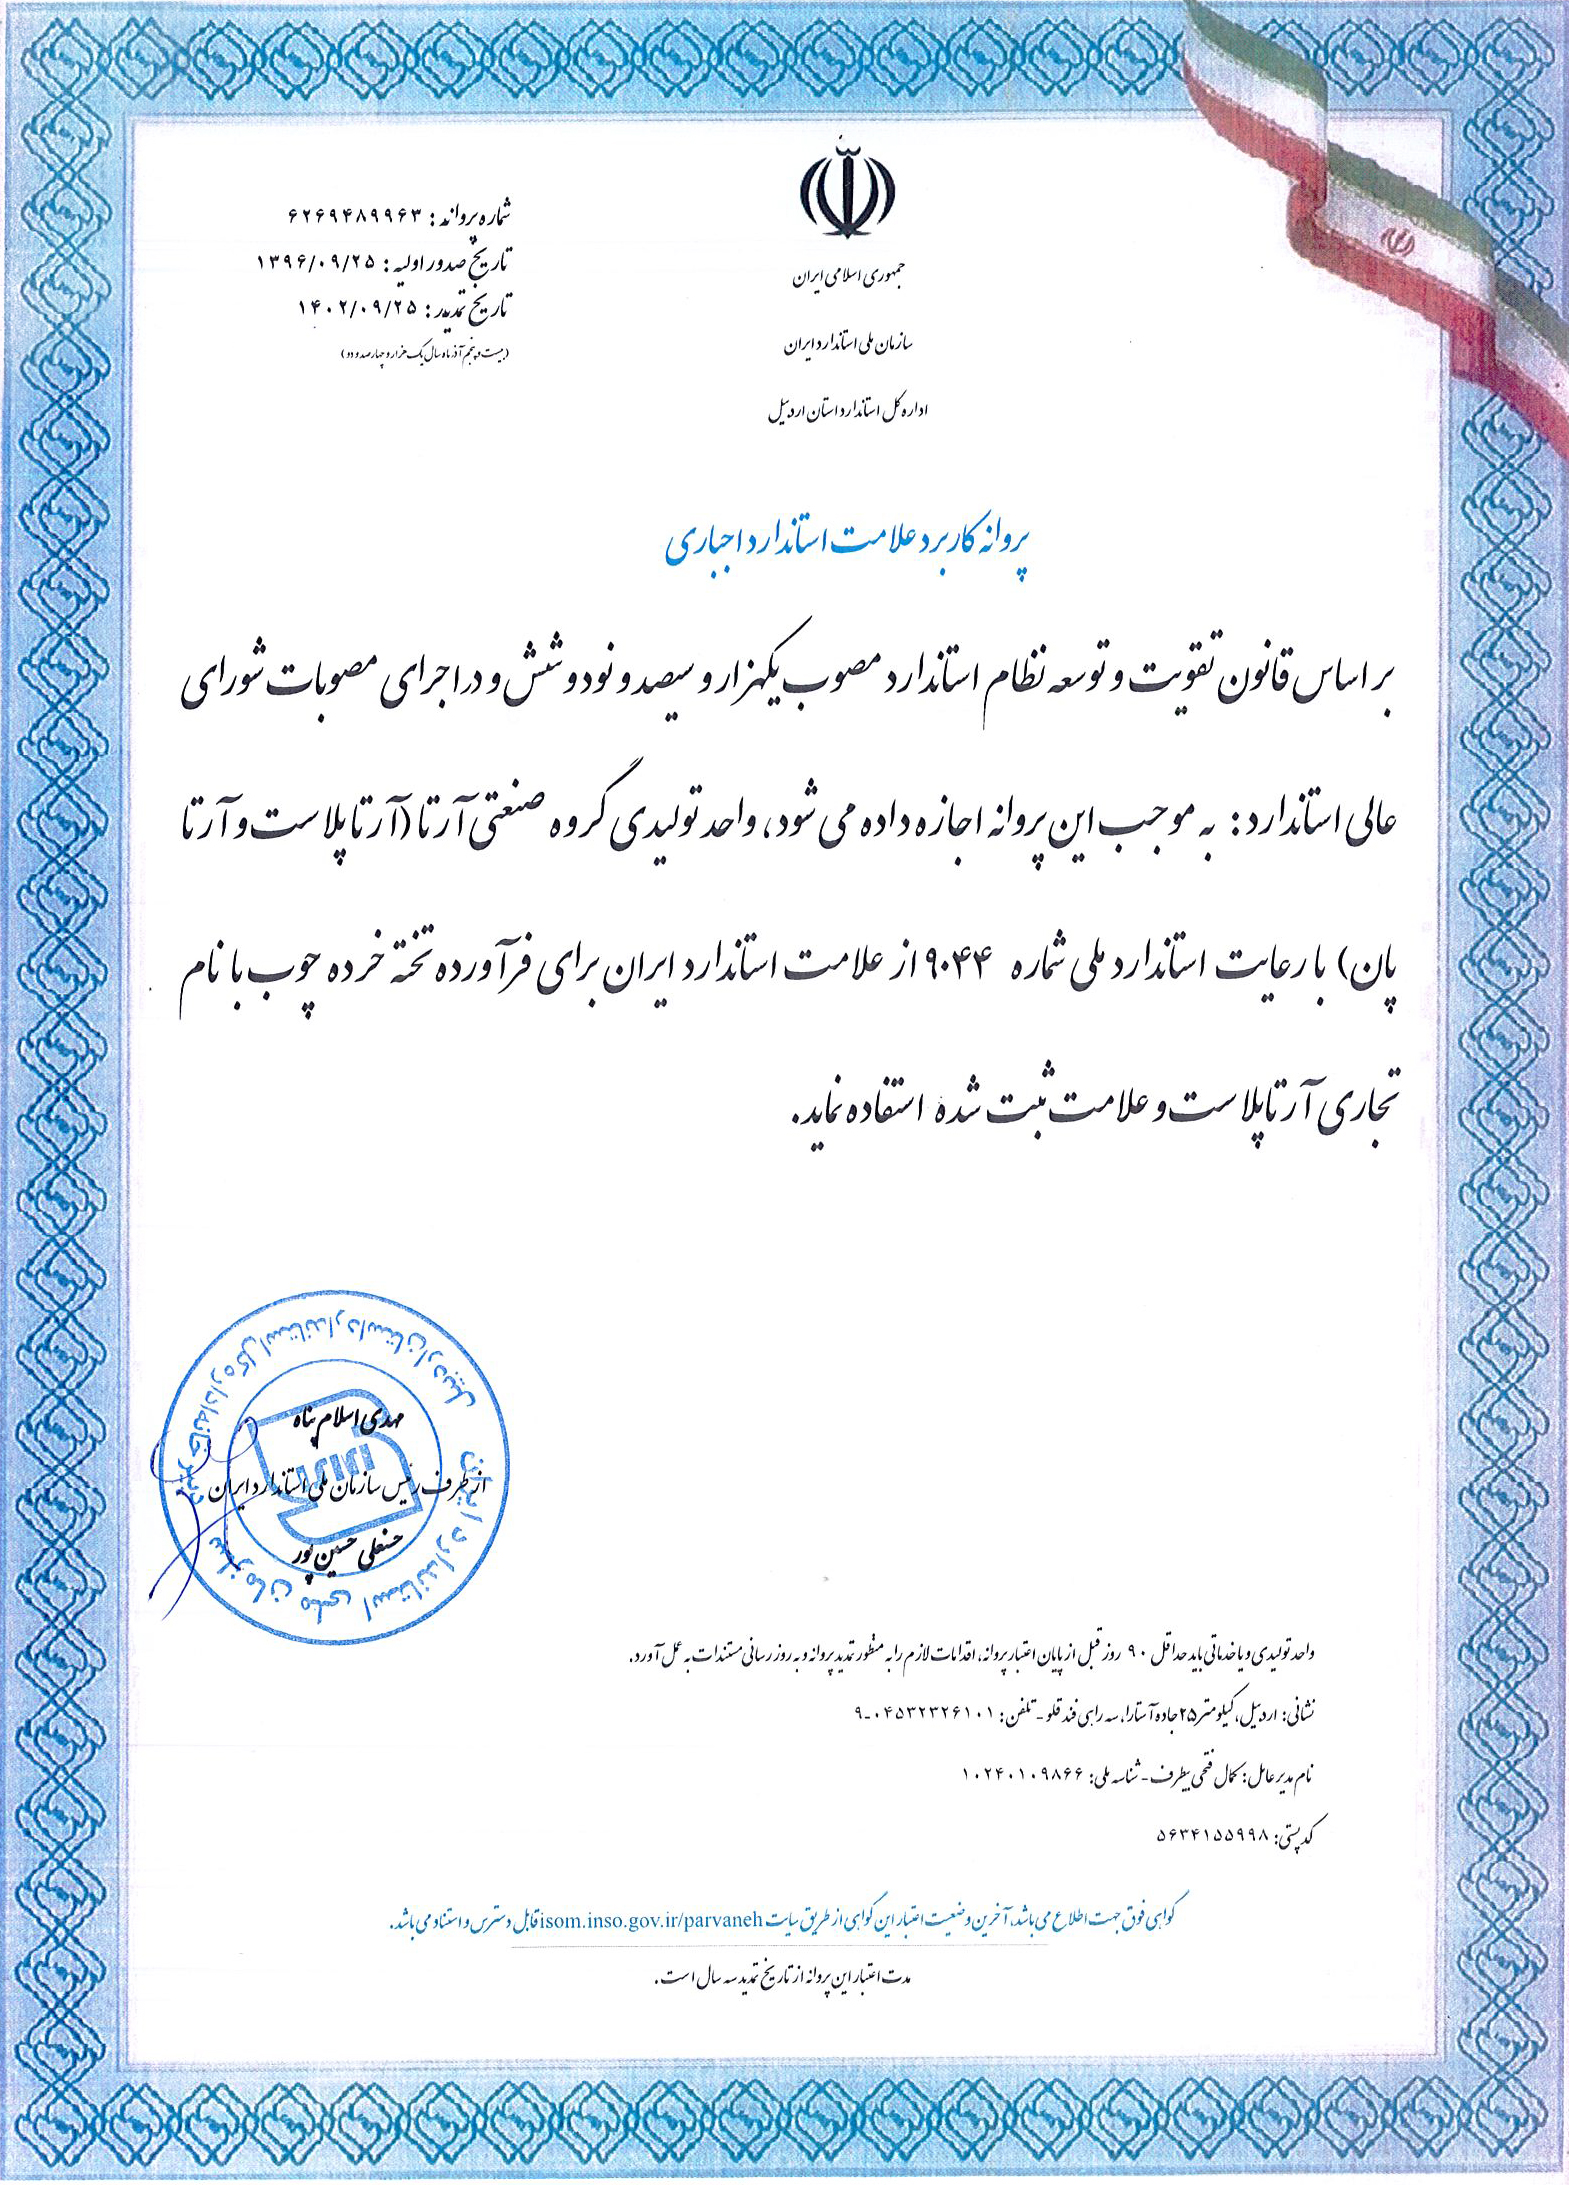 جمهوری اسلامی ایران
سازمان ملی استاندارد ایران
اداره کل استاندارد استان اردبیل
شماره پروانه : ۶۲۶۹۴۸۹۹۶۳
تاریخ صدور اولیه : ۱۳۹۶/۰۹/۲۵
تاریخ تمدید : ۱۴۰۲/۰۹/۲۵
(بیست و پنجم آذر ماه سال یک هزار و چهارصد و دو)
پروانه کاربرد علامت استاندارد اجباری
بر اساس قانون تقویت و توسعه نظام استاندارد مصوب یکهزار و سیصد و نود و شش و در اجرای مصوبات شورای
عالی استاندارد: به موجب این پروانه اجازه داده می شود، واحد تولیدی گروه صنعتی آرتا (آرتا پلاست و آرتا
پان) با رعایت استاندارد ملی شماره ۹۰۴۴ از علامت استاندارد ایران برای فرآورده تخته خرده چوب با نام
تجاری آرتاپلاست و علامت ثبت شده استفاده نماید.
سازمان ملی استاندارد ایران
اداره کل استاندارد استان اردبیل
دبیرخانه
مهدی اسلام پناه
از طرف رئیس سازمان ملی استاندارد ایران
حسنعلی حسین پور
واحد تولیدی و یا خدماتی باید حداقل ۹۰ روز قبل از پایان اعتبار پروانه، اقدامات لازم را به منظور تمدید پروانه و به روز رسانی مستندات به عمل آورد.
نشانی: اردبیل، کیلومتر ۲۵ جاده آستارا، سه راهی فندقلو - تلفن: ۰۴۵۳۲۳۲۶۱۰۱-۹
نام مدیر عامل: کمال فتحی بیطرف - شناسه ملی: ۱۰۲۴۰۱۰۹۸۶۶
کد پستی: ۵۶۳۴۱۵۵۹۹۸
گواهی فوق جهت اطلاع می باشد، آخرین وضعیت اعتبار این گواهی از طریق سایت isom.inso.gov.ir/parvaneh قابل دسترس و استناد می باشد.
مدت اعتبار این پروانه از تاریخ تمدید سه سال است.